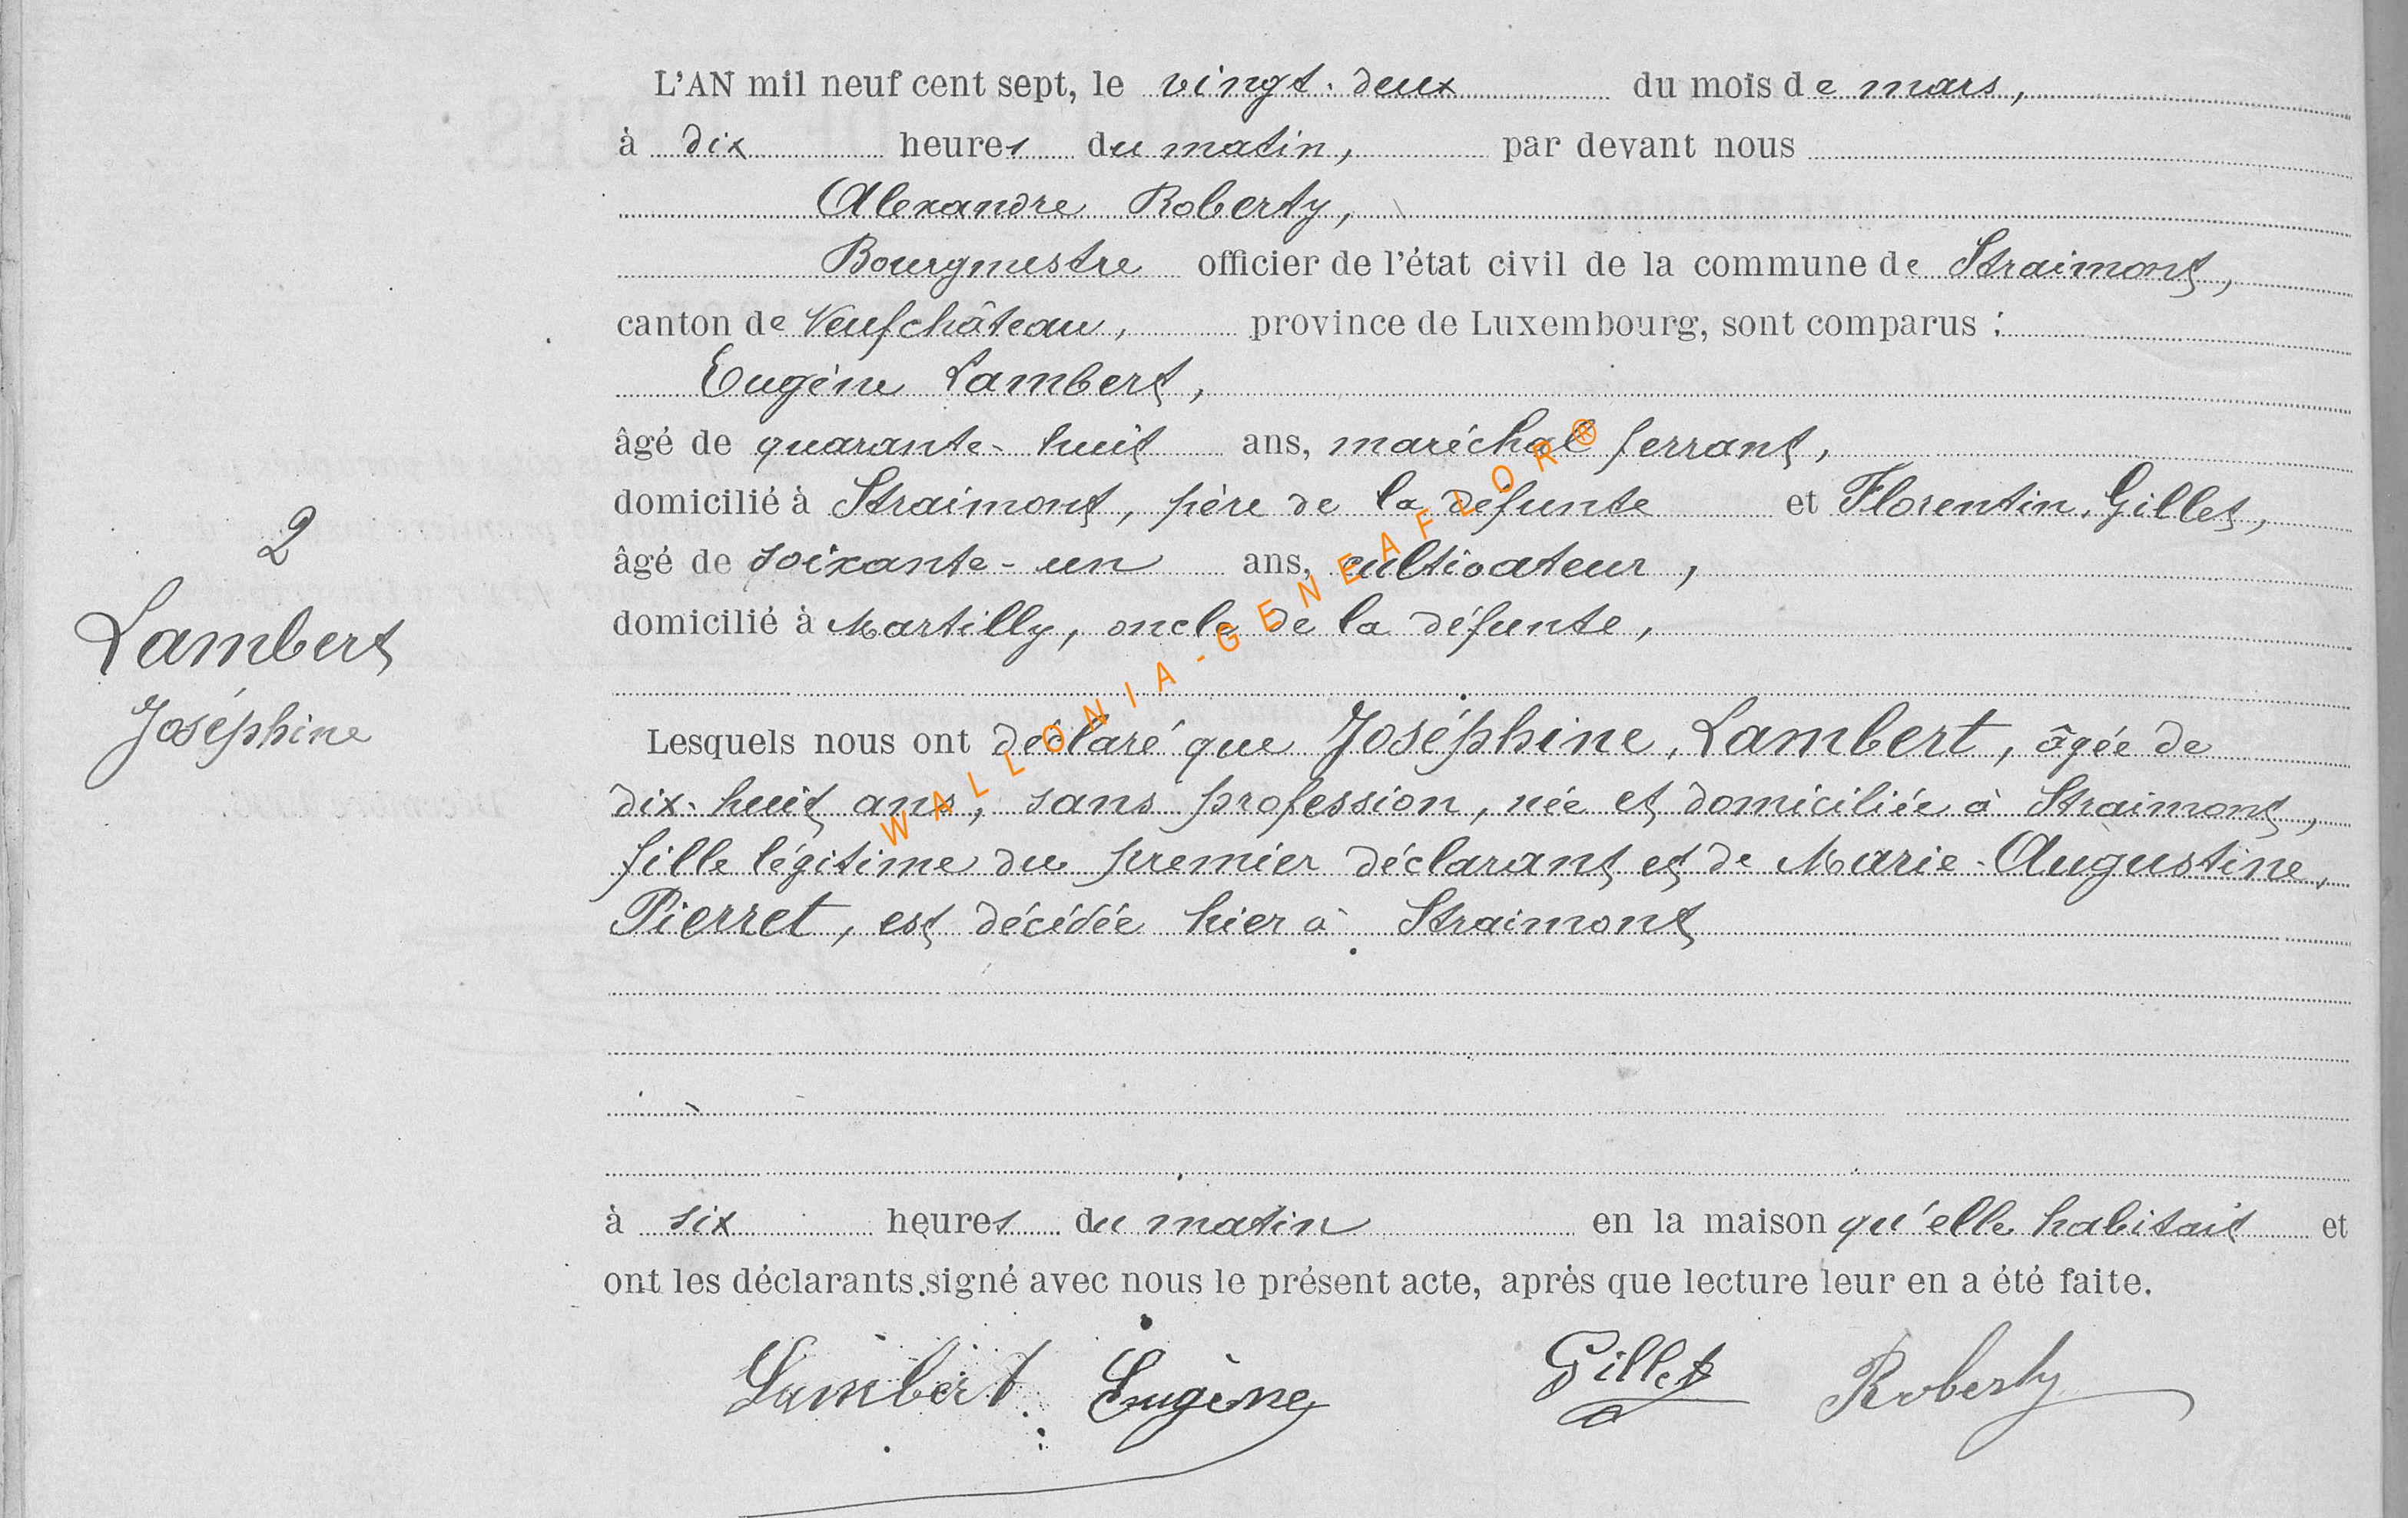 L'AN mil neuf cent sept, le vingt-deux du mois de mars,
à dix heures du matin, par devant nous
Alexandre Roberty,
Bourgmestre officier de l'état civil de la commune de Straimont,
canton de Neufchâteau, province de Luxembourg, sont comparus :
Eugène Lambert,
âgé de quarante-huit ans, maréchal ferrant,
domicilié à Straimont, père de la défunte et Florentin Gillet,
âgé de soixante-un ans, cultivateur,
domicilié à Martilly, oncle de la défunte,
2
Lambert
Joséphine
Lesquels nous ont déclaré que Joséphine Lambert, âgée de
dix-huit ans, sans profession, née et domiciliée à Straimont,
fille légitime du premier déclarant et de Marie-Augustine
Pierret, est décédée hier à Straimont
à six heures du matin en la maison qu'elle habitait et
ont les déclarants signé avec nous le présent acte, après que lecture leur en a été faite.
Lambert Eugène Gillet Roberty
WALLONIA-GENEAFLOR®